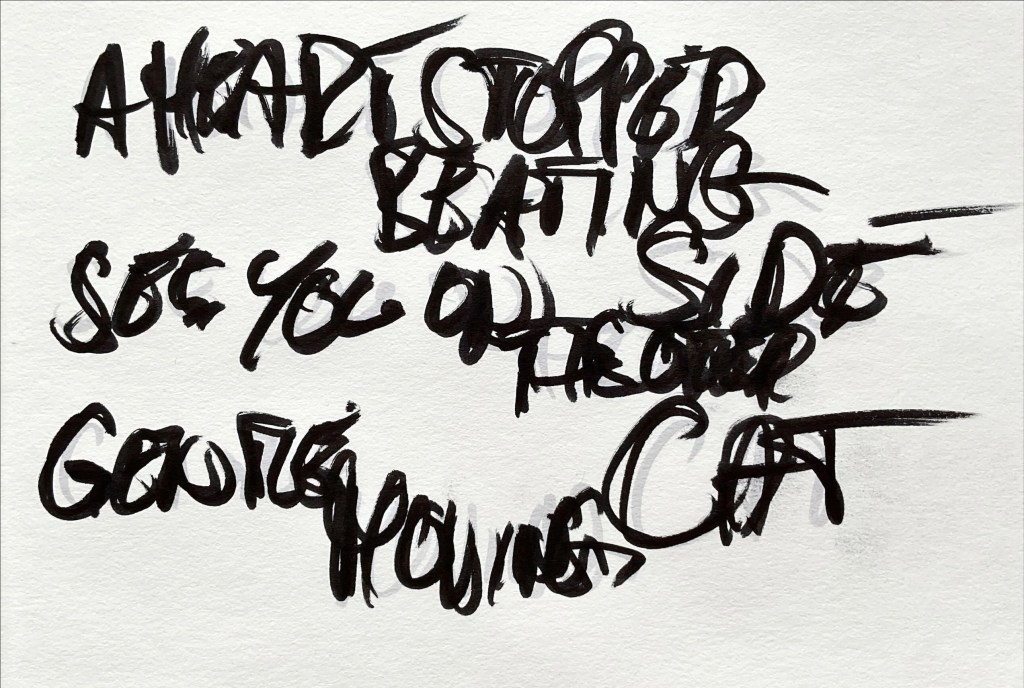 A HEART STOPPED
BEATING
SEE YOU ON SIDE
THE OTHER
GENTLE CAT